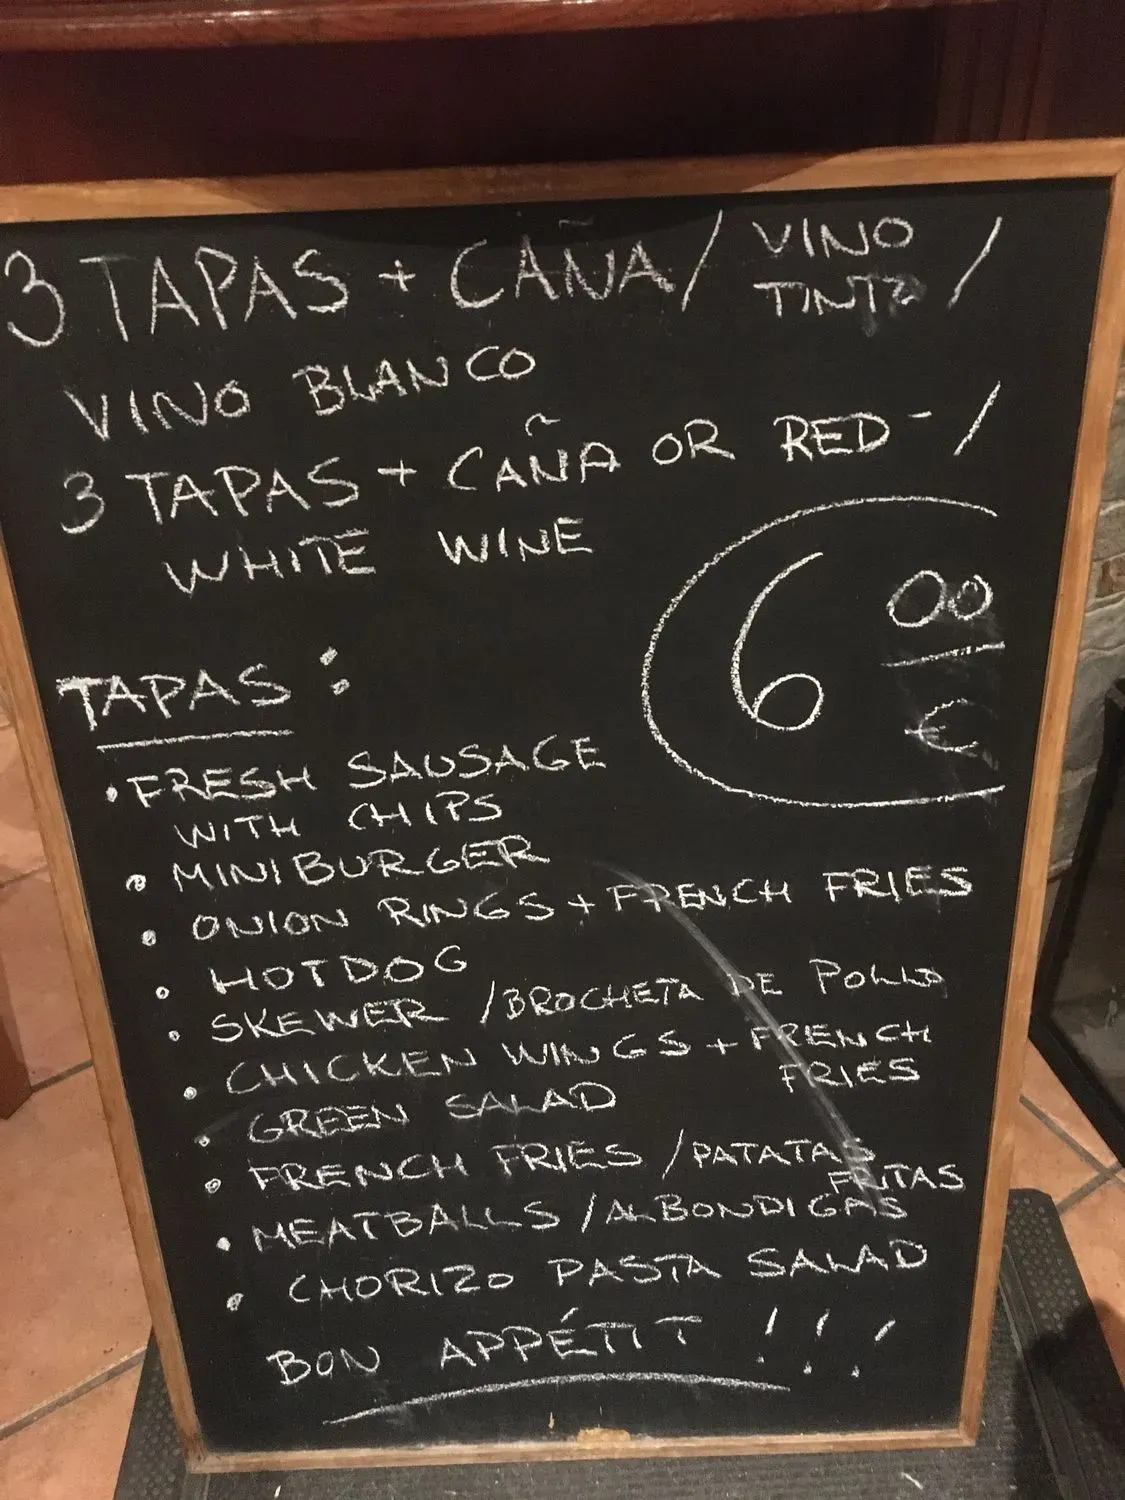 3 TAPAS + CAÑA / VINO TINTO /
VINO BLANCO
3 TAPAS + CAÑA OR RED - /
WHITE WINE
6 00 €
TAPAS :
• FRESH SAUSAGE
WITH CHIPS
• MINIBURGER
• ONION RINGS + FRENCH FRIES
• HOTDOG
• SKEWER / BROCHETA DE POLLO
• CHICKEN WINGS + FRENCH
FRIES
• GREEN SALAD
• FRENCH FRIES / PATATAS
FRITAS
• MEATBALLS / ALBONDIGAS
• CHORIZO PASTA SALAD
BON APPÉTIT !!!